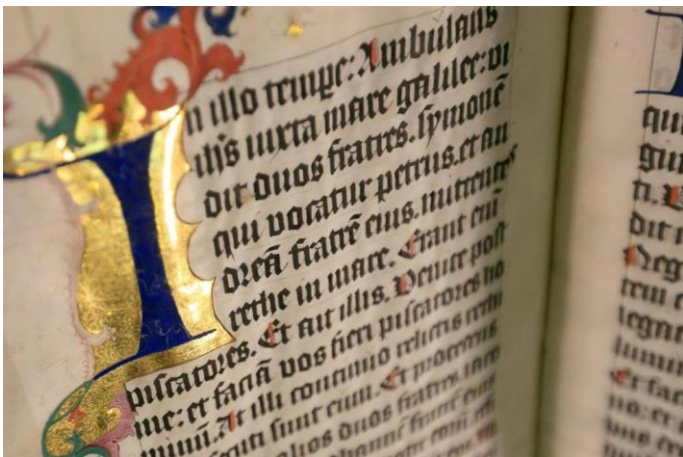 In illo tempe: Ambulans
ihs iuxta mare galilee: vi
dit duos fratres. symonē
qui vocatur petrus. et an
dreā fratrē eius. mittentes
rethe in mare. Erant eni
piscatores. Et ait illis. Venite post
me: et faciā vos fieri piscatores ho
minū. At illi continuo relictis rethi
secuti sunt eum. Et procedens
alios duos fratres
fratrē
qui
gun
ti.
dit
Neg
rem
legat
lumin
Et fac